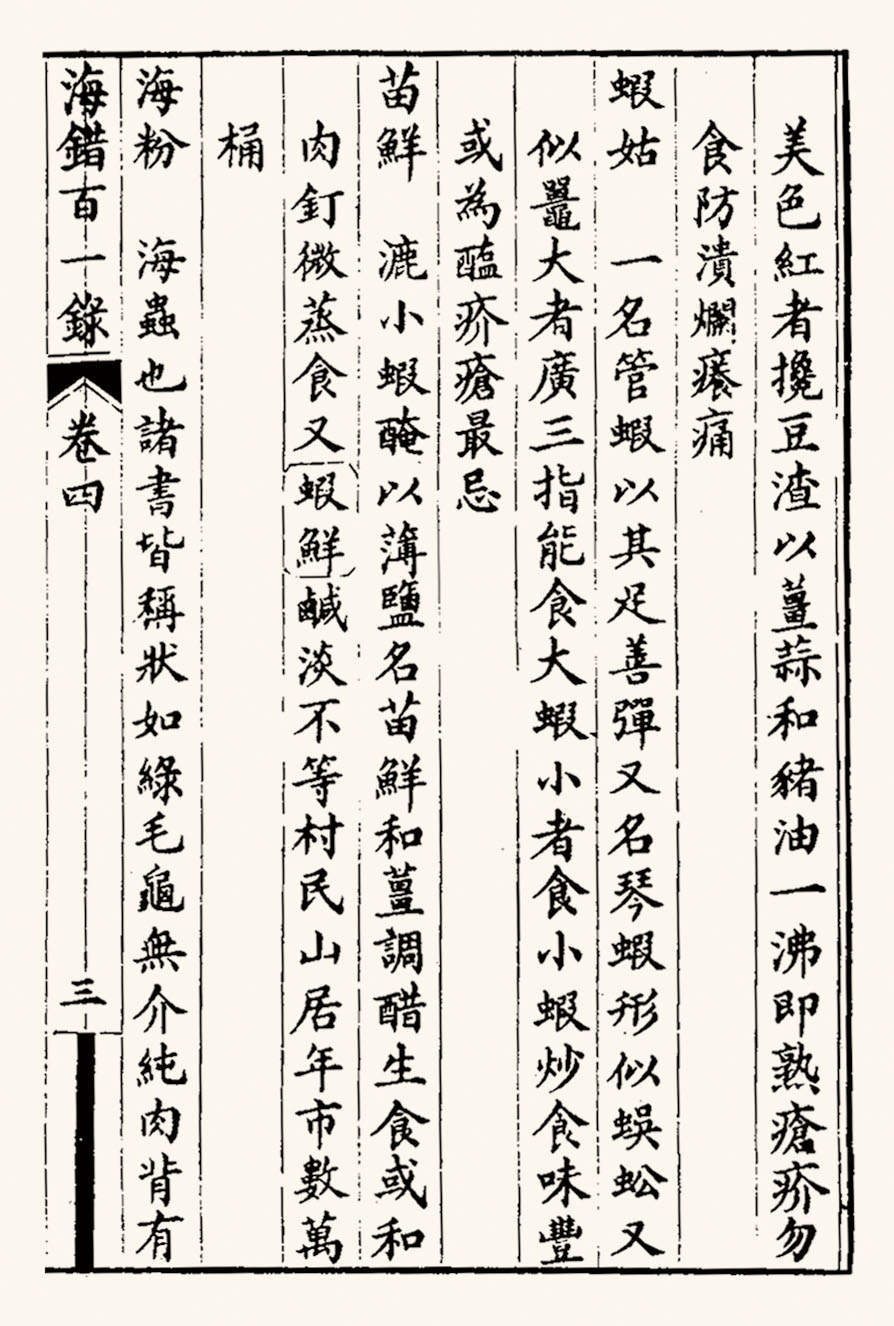 美色紅者攙豆渣以薑蒜和豬油一沸即熟瘡疥勿
食防潰爛癢痛
蝦姑　一名管蝦以其足善彈又名琴蝦形似蜈蚣又
似鼉大者廣三指能食大蝦小者食小蝦炒食味豐
或為醢疥瘡最忌
苗鮮　漉小蝦醃以薄鹽名苗鮮和薑調醋生食或和
肉釘微蒸食又蝦鮮鹹淡不等村民山居年市數萬
桶
海粉　海蟲也諸書皆稱狀如綠毛龜無介純肉背有
海錯百一錄　卷四　三